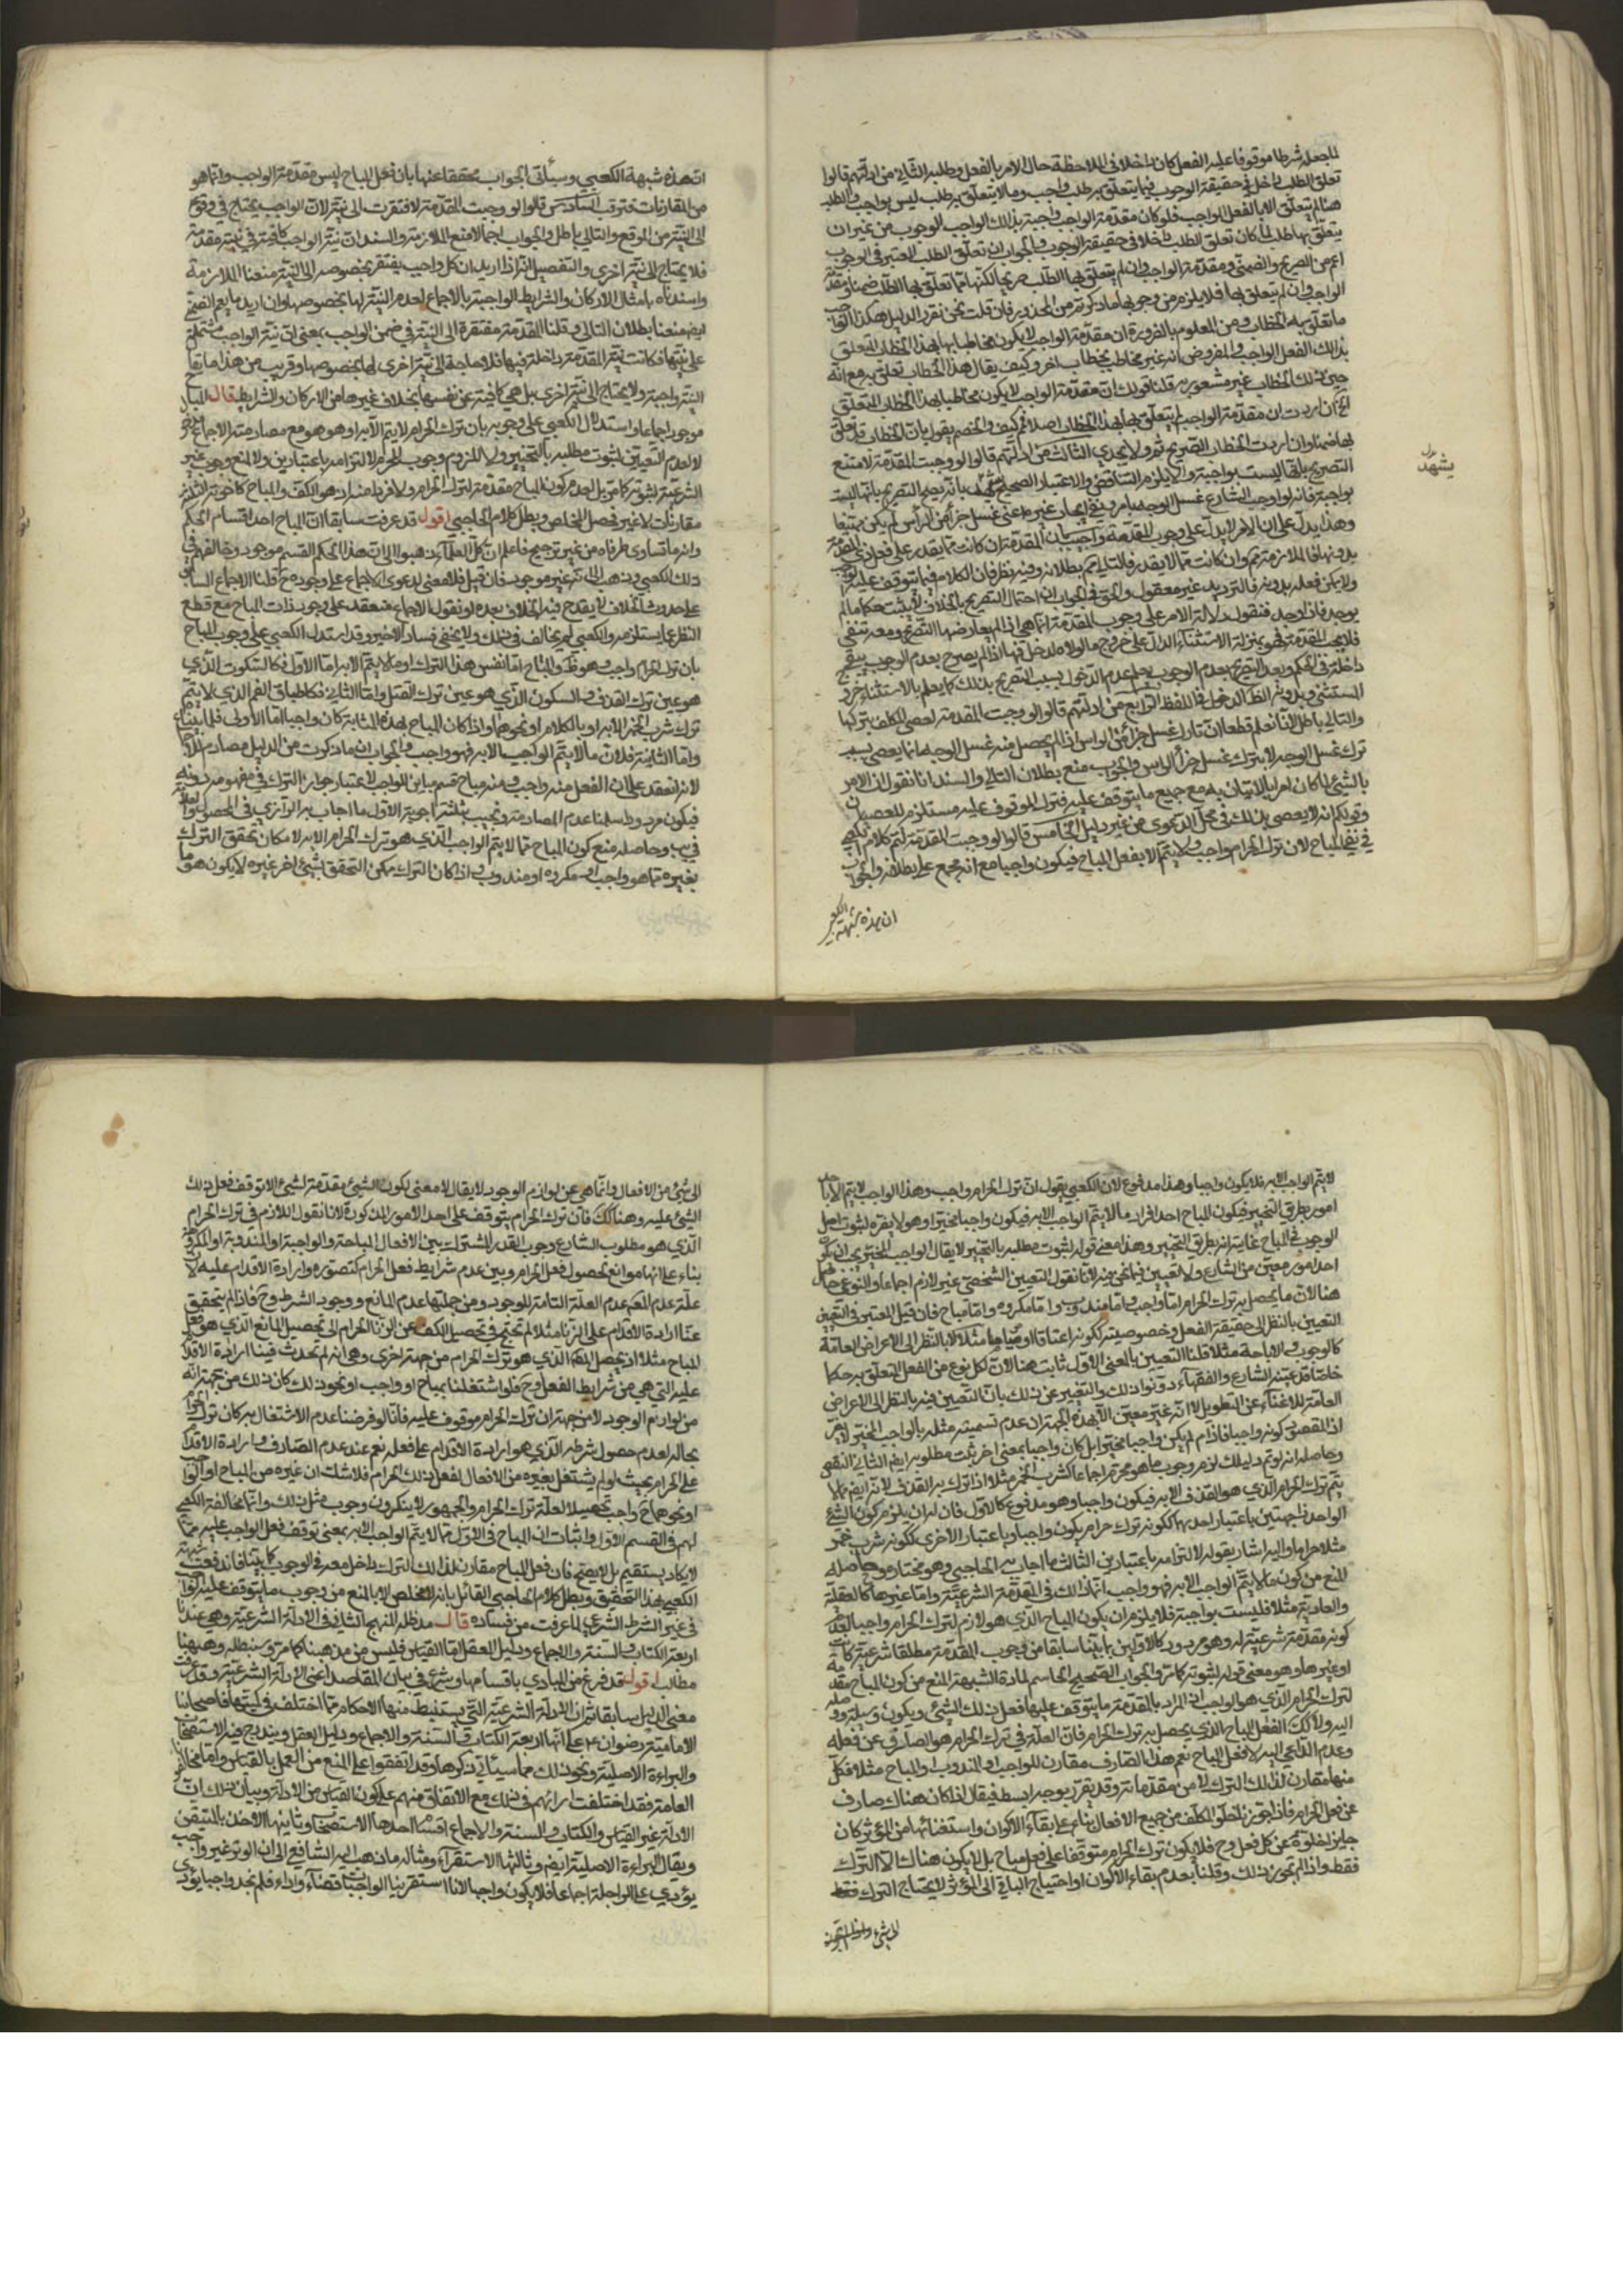 المجعله شرطا موقوفا عليه الفعل كان داخلا في الملاحظة حال الامر بالفعل وطلبه الثاني من ادلتهم قالوا
تعلق الطلب داخل في حقيقة الوجوب فما يتعلق به طلب واجب وما لا يتعلق به طلب ليس بواجب والطلب
هنا لم يتعلق الا بالفعل الواجب فلو كان مقدمة الواجب واجبة بذلك الواجب الوجوب من غير ان
يتعلق بها طلب لما كان تعلق الطلب داخلا في حقيقة الوجوب والجواب ان تعلق الطلب المعتبر في الوجوب
اعم من الصريح والضمني ومقدمة الواجب وان لم يتعلق بها الطلب صريحا لكنها مما تعلق بها الطلب ضمنا ومقدمة
الواجب وان لم يتعلق بها فلا يلزم من وجوبها ما ذكرتم من المحذور فان قلت نحن نقرر الدليل هكذا الواجب
ما تعلق به الخطاب ومن المعلوم بالضرورة ان مقدمة الواجب لا يكون مخاطبا بها بهذا الخطاب المتعلق
بذلك الفعل الواجب والمفروض انه غير مخاطب بخطاب اخر وكيف يقال هذا الخطاب تعلق به مع انه
حين ذلك الخطاب غير مشعور به قلنا قولك ان مقدمة الواجب لا يكون مخاطبا بهذا الخطاب المتعلق
الخ ان اردت ان مقدمة الواجب لم يتعلق بها بهذا الخطاب اصلا فم كيف والخصم يقول بان الخطاب قد تعلق
بها ضمنا وان اردت الخطاب الصريح فم ولا يجدي الثالث من ادلتهم قالوا لو وجبت المقدمة لامتنع
التصريح بانها ليست بواجبة والا يلزم التناقض والاعتبار الصحيح يشهد بانه يصح التصريح بانها ليست
يشهد
بواجبة فانه لو اوجب الشارع غسل الوجه بامر ونفى ايجاب غيره اعني غسل جزء من الراس لم يكن ممتنعا
وهذا يدل على ان الامر لا يدل على وجوب المقدمة واجيب بان المقدمة ان كانت مما يقدر على فعل ذي المقدمة
بدونها فالملازمة مم وان كانت مما لا يقدر فالتالي مم بطلانه وفيه نظر فان الكلام فيما يتوقف عليه الواجب
ولا يمكن فعله بدونه فالترديد غير معقول والحق في الجواب ان احتمال التصريح بالخلاف لا يثبت حكما ما لم
يوجد فاذا وجد فنقول دلالة الامر على وجوب المقدمة انما هي اذا لم يعارضها التصريح ومعه تنفى
فلا يجب المقدمة فهو بمنزلة الاستثناء الدال على خروج ما لولاه لدخل فيها اذا لم يصرح بعدم الوجوب يبقى
داخلة في الحكم وبعد التصريح بعدم الوجوب يعلم عدم الدخول بسبب التصريح بذلك كما يعلم بالاستثناء خروج
المستثنى وبدونه الظ الدخول في اللفظ الرابع من ادلتهم قالوا لو وجبت المقدمة لعصى المكلف بتركها
والتالي باطل لانا نعلم قطعا ان تارك غسل جزء من الراس اذا لم يحصل منه غسل الوجه انما يعصي بسبب
ترك غسل الوجه لا بترك غسل جزء الراس والجواب منع بطلان التالي والسند انا نقول اذا الامر
بالشيء لما كان امرا بالاتيان به مع جميع ما يتوقف عليه فترك الموقوف عليه مستلزم للعصيان
وقولكم انه لا يعصي بذلك في محل الدعوى من غير دليل الخامس قالوا لو وجبت المقدمة لتم كلام الكعبي
في نفي المباح لان ترك الحرام واجب ولا يتم الا بفعل المباح فيكون واجبا مع انه مجمع على بطلانه والجواب
ان هذه شبهة الكعبي
ان هذه شبهة الكعبي وسيأتي الجواب محققا عنها بان فعل المباح ليس مقدمة الواجب وانما هو
من المقارنات فترقب السادس قالوا لو وجبت المقدمة لافتقرت الى نية لان الواجب يحتاج في وقوعه
الى النية من الموقع والتالي باطل والجواب اجمالا منع الملازمة والسند ان نية الواجب كافية في نية مقدمته
فلا يحتاج الى نية اخرى والتفصيل انه اذا اريد ان كل واجب يفتقر بخصوصه الى النية منعنا الملازمة
واسندناه بامثال الاركان والشرايط الواجبة بالاجماع لعدم النية لها بخصوصها وان اريد ما يعم الضمني
ايضا منعنا بطلان التالي وقلنا المقدمة مفتقرة الى النية في ضمن الواجب بمعنى ان نية الواجب مشتملة
على نيتها فكانت نية المقدمة داخلة فيها فلا حاجة الى نية اخرى لها بخصوصها وقريب من هذا ما يقال
النية واجبة ولا يحتاج الى نية اخرى بل هي كافية عن نفسها بخلاف غيرها من الاركان والشرايط قال المباح
موجود اجماعا واستدلال الكعبي على وجوبه بان ترك الحرام لا يتم الا به او هو هو مع مصادمته الاجماع مدفوع
لا لعدم التعيين لثبوت مطلبه بالتخيير ولا للزوم وجوب المحرم لالتزامه باعتبارين ولا لمنع وجوب غير
الشرعية لثبوته كما مر بل لعدم كون المباح مقدمة لترك الحرام ولا فردا منه اذ هو الكف والمباح كاخوته الثلاثة
مقارنات لا غير فحصل الخلاص وبطل كلام الحاجبي اقول قد عرفت سابقا ان المباح احد اقسام الحكم
وانه ما تساوى طرفاه من غير ترجيح فاعلم ان كل العلماء ذهبوا الى ان هذا الحكم القسم موجود وخالفهم في
ذلك الكعبي وذهب الى انه غير موجود فان قيل فلا معنى لدعوى الاجماع على وجوده ح قلنا الاجماع السابق
على حدوث الخلاف لا يقدح فيه الخلاف بعده او نقول الاجماع منعقد على وجود ذات المباح مع قطع
النظر عما يستلزمه والكعبي لم يخالف في ذلك ولا يخفى فساد الاخير وقد استدل الكعبي على وجوب المباح
بان ترك الحرام واجب وهو ظ والمباح اما نفس هذا الترك او ما لا يتم الا به اما الاول فكالسكوت الذي
هو عين ترك القذف والسكون الذي هو عين ترك القتل واما الثاني فكاطباق الفم الذي لا يتم
ترك شرب الخمر الا به او بالكلام او نحوهما واذا كان المباح بهذه المثابة كان واجبا اما الاولى فلما بيناه
واما الثانية فلان ما لا يتم الواجب الا به فهو واجب والجواب ان ما ذكرت من الدليل مصادم للاجماع
لانه انعقد على ان الفعل منه واجب ومنه مباح قسم مباين للواجب لاعتبار جواز الترك في مفهومه دونه
فيكون مردودا سلمنا عدم المصادمة ونجيب بثلثة اجوبة الاول ما اجاب به الرازي في المحصول
وحاصله منع كون المباح مما لا يتم الواجب الذي هو ترك الحرام الا به لامكان تحقق الترك
بغيره مما هو واجب او مكروه او مندوب واذا كان الترك ممكن التحقق بشيء اخر غيره لا يكون هو ما
لا يتم الواجب الا به فلا يكون واجبا وهذا مدفوع لان الكعبي يقول ان ترك الحرام واجب وهذا الواجب لا يتم الا باحد
امور بطريق التخيير فيكون المباح احد افراد ما لا يتم الواجب الا به فيكون واجبا مخيرا وهو لا يضره لثبوت اصل
الوجوب في المباح غايته انه بطريق التخيير وهذا معنى قوله لثبوت مطلبه بالتخيير لا يقال الواجب المخير يجب ان يكون
احد امور معينة من الشارع ولا تعيين فيما نحن فيه لانا نقول التعيين الشخصي غير لازم اجماعا والنوعي حاصل
هنا لان ما يحصل به ترك الحرام اما واجب واما مندوب واما مكروه واما مباح فان قيل المعتبر في التعيين
التعيين بالنظر الى حقيقة الفعل وخصوصيته ككونه اعتاقا او صياما مثلا لا بالنظر الى الاعراض العامة
كالوجوب والاباحة مثلا قلنا التعيين بالمعنى الاول ثابت هنا لان لكل نوع من الفعل المتعلق به حكما
خاصا قد عينه الشارع والفقهاء دونوا ذلك والتعبير عن ذلك بان التعيين فيه بالنظر الى الاعراض
العامة للاغناء عن التطويل لا انه غير معين الا بهذه الجهة ان عدم تسميته مثله بالواجب المخير لا يضر
اذ المقصود كونه واجبا فاذا لم يكن واجبا مخيرا بل كان واجبا بمعنى اخر ثبت مطلوبه ايضا الثاني النقض
وحاصله انه لو تم دليلك لزم وجوب ما هو محرم اجماعا كشرب الخمر مثلا اذا ترك به القذف لانه ايضا مما لا
يتم ترك الحرام الذي هو القذف الا به فيكون واجبا وهو مدفوع كالاول فان له ان يلتزم كون الشيء
الواحد ذا جهتين باعتبار احديهما ككونه ترك حرام يكون واجبا وباعتبار الاخرى ككونه شرب خمر
مثلا حراما واليه اشار بقوله لالتزامه باعتبارين الثالث ما اجاب به الحاجبي وهو مختاره وحاصله
المنع من كون ما لا يتم الواجب الا به فهو واجب انما ذلك في المقدمة الشرعية واما غيرها كالعقلية
والعادية مثلا فليست بواجبة فلا يلزم ان يكون المباح الذي هو لازم لترك الحرام واجبا لعدم
كونه مقدمة شرعية له وهو مردود كالاولين بما بينا سابقا من وجوب المقدمة مطلقا شرعية كانت
او غيرها وهو معنى قوله لثبوته كما مر والجواب الصحيح الحاسم لمادة الشبهة المنع من كون المباح مقدمة
لترك الحرام الذي هو الواجب اذ المراد بالمقدمة ما يتوقف عليها فعل ذلك الشيء ويكون وسيلة ووصلة
اليه ولا كك الفعل المباح الذي يحصل به ترك الحرام فان العلة في ترك الحرام هو الصارف عن فعله
وعدم الداعي اليه لا فعل المباح نعم هذا الصارف مقارن للواجب او المندوب او المباح مثلا فكل
منها مقارن لذلك الترك لا من مقدماته وقد يقرر بوجه ابسط فيقال اذا كان هناك صارف
عن فعل الحرام فاذا جوزنا خلو المكلف من جميع الافعال بناء على بقاء الاكوان واستغنائها من المؤثر كان
جايز الخلو عن كل فعل وح فلا يكون ترك الحرام متوقفا على فعل مباح بل لا يكون هناك الا الترك
فقط واذا لم نجوز ذلك وقلنا بعدم بقاء الاكوان او احتياج الباقي الى المؤثر لا يحتاج الترك فقط
الى شيء
الى شيء من الافعال وانما هي من لوازم الوجود لا يقال لا معنى لكون الشيء مقدمة لشيء الا توقف فعل ذلك
الشيء عليه وهنا كك فان ترك الحرام يتوقف على احد الامور المذكورة لانا نقول اللازم في ترك الحرام
الذي هو مطلوب الشارع وجوب القدر المشترك بين الافعال المباحة والواجبة او المندوبة او المكروهة
بناء على انها موانع لحصول فعل الحرام وبين عدم شرايط فعل الحرام كتصوره وارادة الاقدام عليه لان
علة عدم الحكم عدم العلة التامة للوجود ومن جملتها عدم المانع ووجود الشرط وح فاذا لم يتحقق
عنا ارادة الاقدام على الزنا مثلا لم نحتج في تحصيل الكف عن الزنا الحرام الى تحصيل المانع الذي هو فعل
المباح مثلا اذ يحصل الكف الذي هو ترك الحرام من جهة اخرى وهي انه لم تحدث فينا ارادة الاقدام
عليه التي هي من شرايط الفعل وح فلو اشتغلنا بمباح او واجب او نحو ذلك كان ذلك من جهة انه
من لوازم الوجود لا من جهة ان ترك الحرام موقوف عليه فانا لو فرضنا عدم الاشتغال به كان ترك الحرام
بحاله لعدم حصول شرطه الذي هو ارادة الاقدام على فعله نعم عند عدم الصارف وارادة الاقدام
على الحرام بحيث لو لم يشتغل بغيره من الافعال لفعل ذلك الحرام فلا شك ان غيره من المباح او الواجب
او نحوهما ح واجب تحصيلا لعلة ترك الحرام والجمهور لا ينكرون وجوب مثل ذلك وانما مخالفة الكعبي
لهم في القسم الاول واثبات ان المباح في الاول مما لا يتم الواجب الا به بمعنى توقف فعل الواجب عليه مما
لا يكاد يستقيم بل لا يصح فان فعل المباح مقارن لذلك الترك داخل معه في الوجود كما بينا فاندفعت شبهة
الكعبي بهذا التحقيق وبطل كلام الحاجبي القائل بانه لا مخلص الا بالمنع من وجوب ما يتوقف عليه الواجب
في غير الشرط الشرعي لما عرفت من فساده قال مد ظله المنهج الثاني في الادلة الشرعية وهي عندنا
اربعة الكتاب والسنة والاجماع ودليل العقل اما القياس فليس من مذهبنا كما مر وسنبطله وههنا
مطالب اقول قد فرغ من المبادي باقسامها وشرع في بيان المقاصد اعني الادلة الشرعية وقد عرفت
معنى الدليل سابقا ثم ان الادلة الشرعية التي يستنبط منها الاحكام مما اختلف في كميتها فاصحابنا
الامامية رضوان الله عليهم على انها اربعة الكتاب والسنة والاجماع ودليل العقل ويندرج فيه الاستصحاب
والبراءة الاصلية ونحو ذلك مما سيأتي ذكرها وقد اتفقوا على المنع من العمل بالقياس واما مخالفونا
العامة فقد اختلفت اراؤهم في ذلك مع الاتفاق منهم على كون القياس من الادلة وبيان ذلك ان
الادلة غير القياس والكتاب والسنة والاجماع اقسام احدها الاستصحاب وثانيها الاخذ بالمتيقن
ويقال البراءة الاصلية ايضا وثالثها الاستقراء ومثاله ما ذهب اليه الشافعي الى ان الوتر غير واجب
يؤدي على الراحلة اجماعا فلا يكون واجبا لانا استقرينا الواجبات قضاء واداء فلم نجد واجبا يؤدى